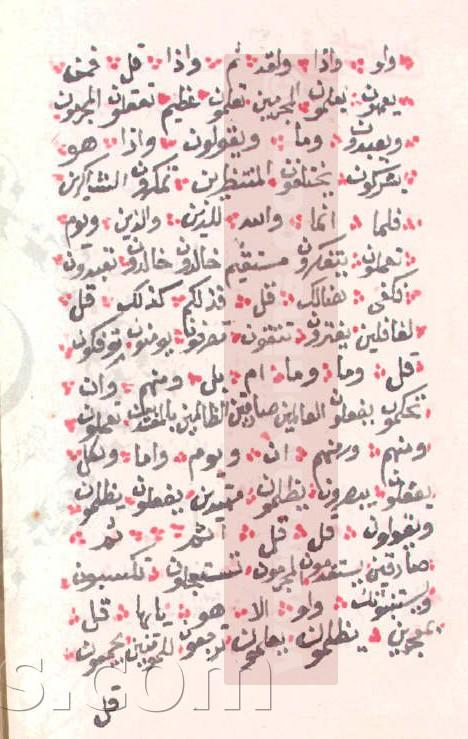 ولو واذا ولقد ثم واذا قل فمن
يعمهون يعملون المجرمين تعملون عظيم تعقلون المجرمون
ويعبدون وما ويقولون واذا هو
يشركون يختلفون المنتظرين تمكرون الشاكرين
فلما انما والله للذين والذين ويوم
تعملون يتفكرون مستقيم خالدون خالدون تعبدون
فكفى هنالك قل فذلكم كذلك قل
لغافلين يفترون تتقون تصرفون يومنون توفكون
قل وما وما ام بل ومنهم وان
تحكمون يفعلون العالمين صادقين الظالمين بالمفسدين تعملون
ومنهم ومنهم ان ويوم واما ولكل
يعقلون يبصرون يظلمون مهتدين يفعلون يظلمون
ويقولون قل قل اثم ثم
صادقين يستقدمون المجرمون تستعجلون تكسبون
ويستنبئونك ولو الا هو يايها قل
بمعجزين يظلمون يعلمون ترجعون للمومنين يجمعون
قل
s.com